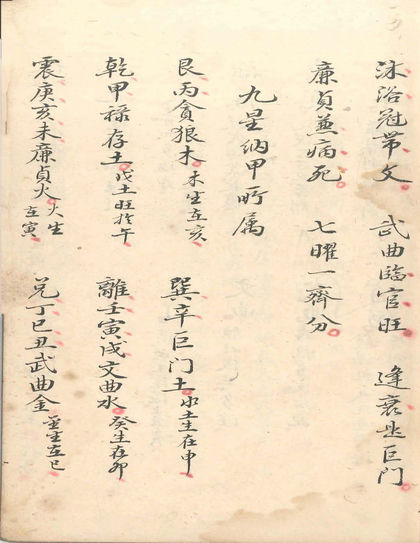 沐浴冠带文 武曲臨官旺 逢衰是巨门
廉貞兼病死 七曜一齊分
九星纳甲所属
艮丙貪狼木 木生在亥 巽辛巨门土 水土生在申
乾甲禄存土 戊土旺於午 離壬寅戌文曲水 癸生在卯
震庚亥未廉貞火 火生在寅 兑丁巳丑武曲金 金生在巳